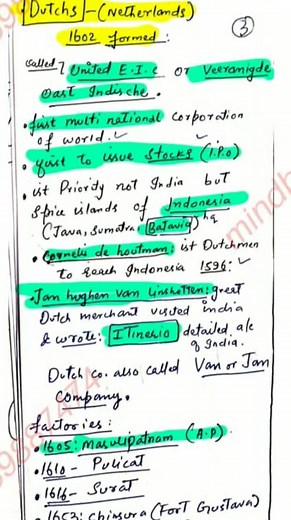 Dutchs - (Netherlands)
③
1602 formed:
called] United E.I.C or Vereenigde
Oost Indische.
• first multi national Corporation
of world.
• first To issue Stocks (I.P.O)
• ist Priority not India but
Spice islands of Indonesia
(Java, Sumatra, Batavia) hq
• Cornelis de houtman: ist Dutchmen
to reach Indonesia 1596:
• Jan hughen Van Linshotten: great
Dutch merchant visited india
& wrote: ITinerio detailed a/c
of India.
Dutch co. also called Van or Jan
Company.
factories:
• 1605: Masulipatnam (A.P)
• 1610 - Pulicat
• 1616 - Surat
• 1653: chinsura (Fort Gustava)